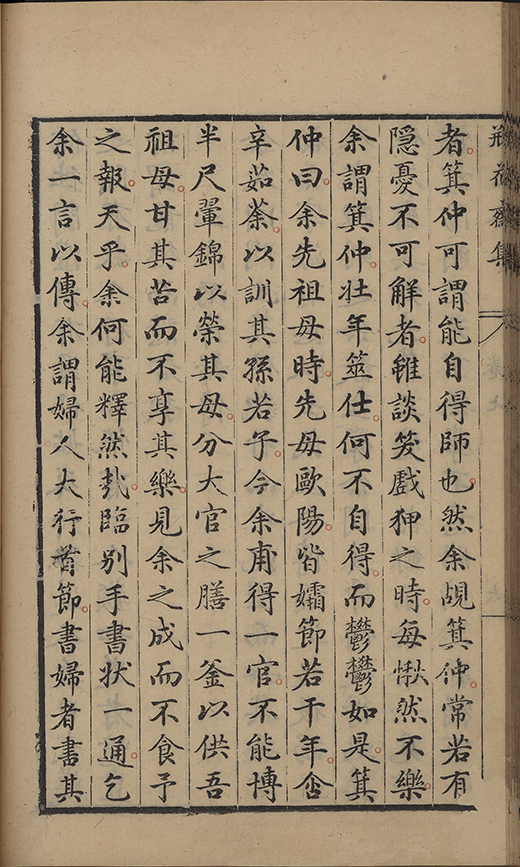 瓶花齋集
者箕仲可謂能自得師也然余覘箕仲常若有
隱憂不可解者雖談笑戲狎之時每愀然不樂
余謂箕仲壯年筮仕何不自得而鬱鬱如是箕
仲曰余先祖母時先母歐陽皆孀節若干年含
辛茹荼以訓其孫若子今余甫得一官不能博
半尺翬錦以榮其母分大官之膳一釜以供吾
祖母甘其苦而不享其樂見余之成而不食予
之報天乎余何能釋然哉臨別手書狀一通乞
余一言以傳余謂婦人大行首節書婦者書其